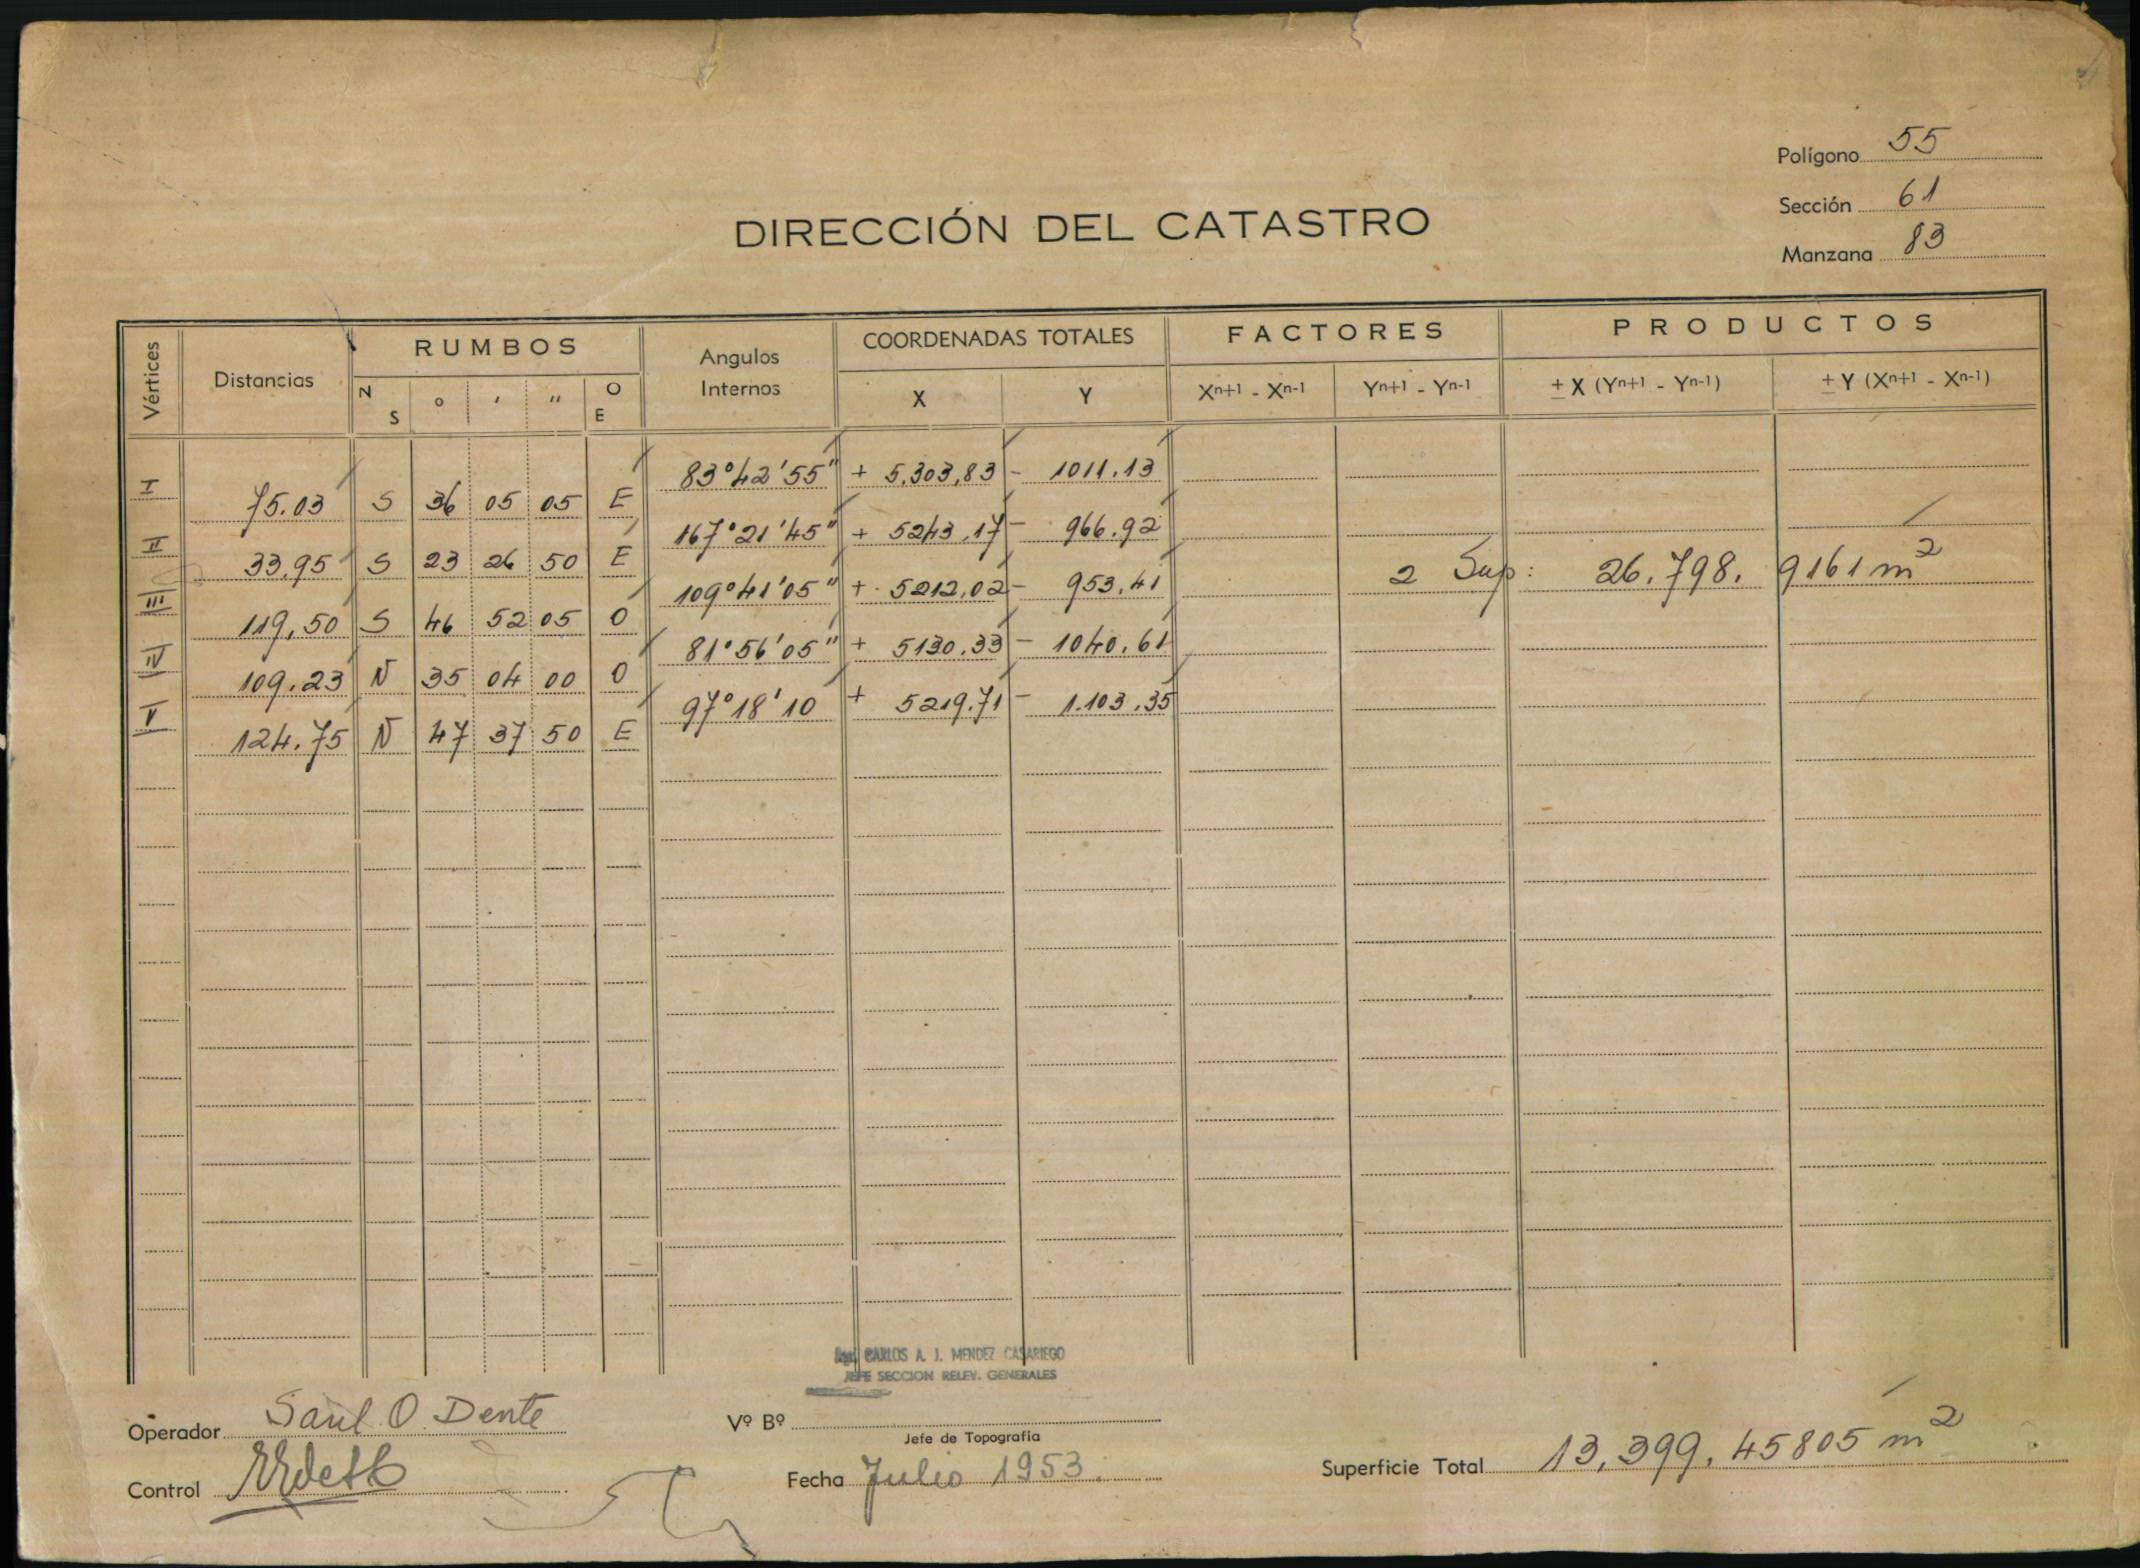 Polígono 55
Sección 61
DIRECCIÓN DEL CATASTRO
Manzana 83
Vértices Distancias RUMBOS Angulos Internos COORDENADAS TOTALES FACTORES PRODUCTOS
N S ° ' '' O E X Y Xn+1 - Xn-1 Yn+1 - Yn-1 ± X (Yn+1 - Yn-1) ± Y (Xn+1 - Xn-1)
I 83°42'55" + 5.303,83 - 1011.13
75.03 S 36 05 05 E
II 167°21'45" + 5243,17 - 966.92
33,95 S 23 26 50 E
2 Sup: 26.798. 9161 m2
III 109°41'05" + 5212,02 - 953,41
119,50 S 46 52 05 O
IV 81°56'05" + 5130.33 - 1040,61
109.23 N 35 04 00 O
V 97°18'10 + 5219.71 - 1.103,35
124.75 N 47 37 50 E
Ing. CARLOS A. J. MENDEZ CASARIEGO
JEFE SECCION RELEV. GENERALES
Operador Saul O. Dente
Vº Bº
Jefe de Topografía
Control
Fecha Julio 1953.
Superficie Total 13,399,45805 m2